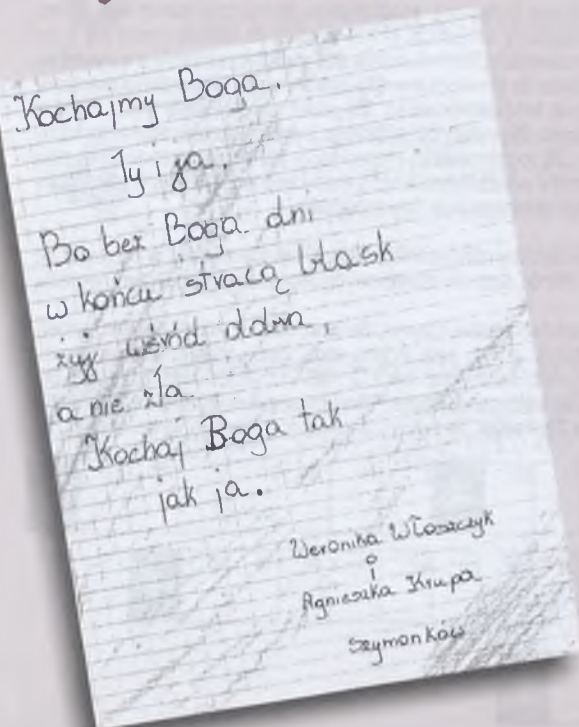 Kochajmy Boga.
Ty i ja.
Bo bez Boga dni
w końcu stracą blask
żyj wśród dobra,
a nie zła
Kochaj Boga tak
jak ja.
Weronika Włoszczyk
i
Agnieszka Krupa
Szymonków